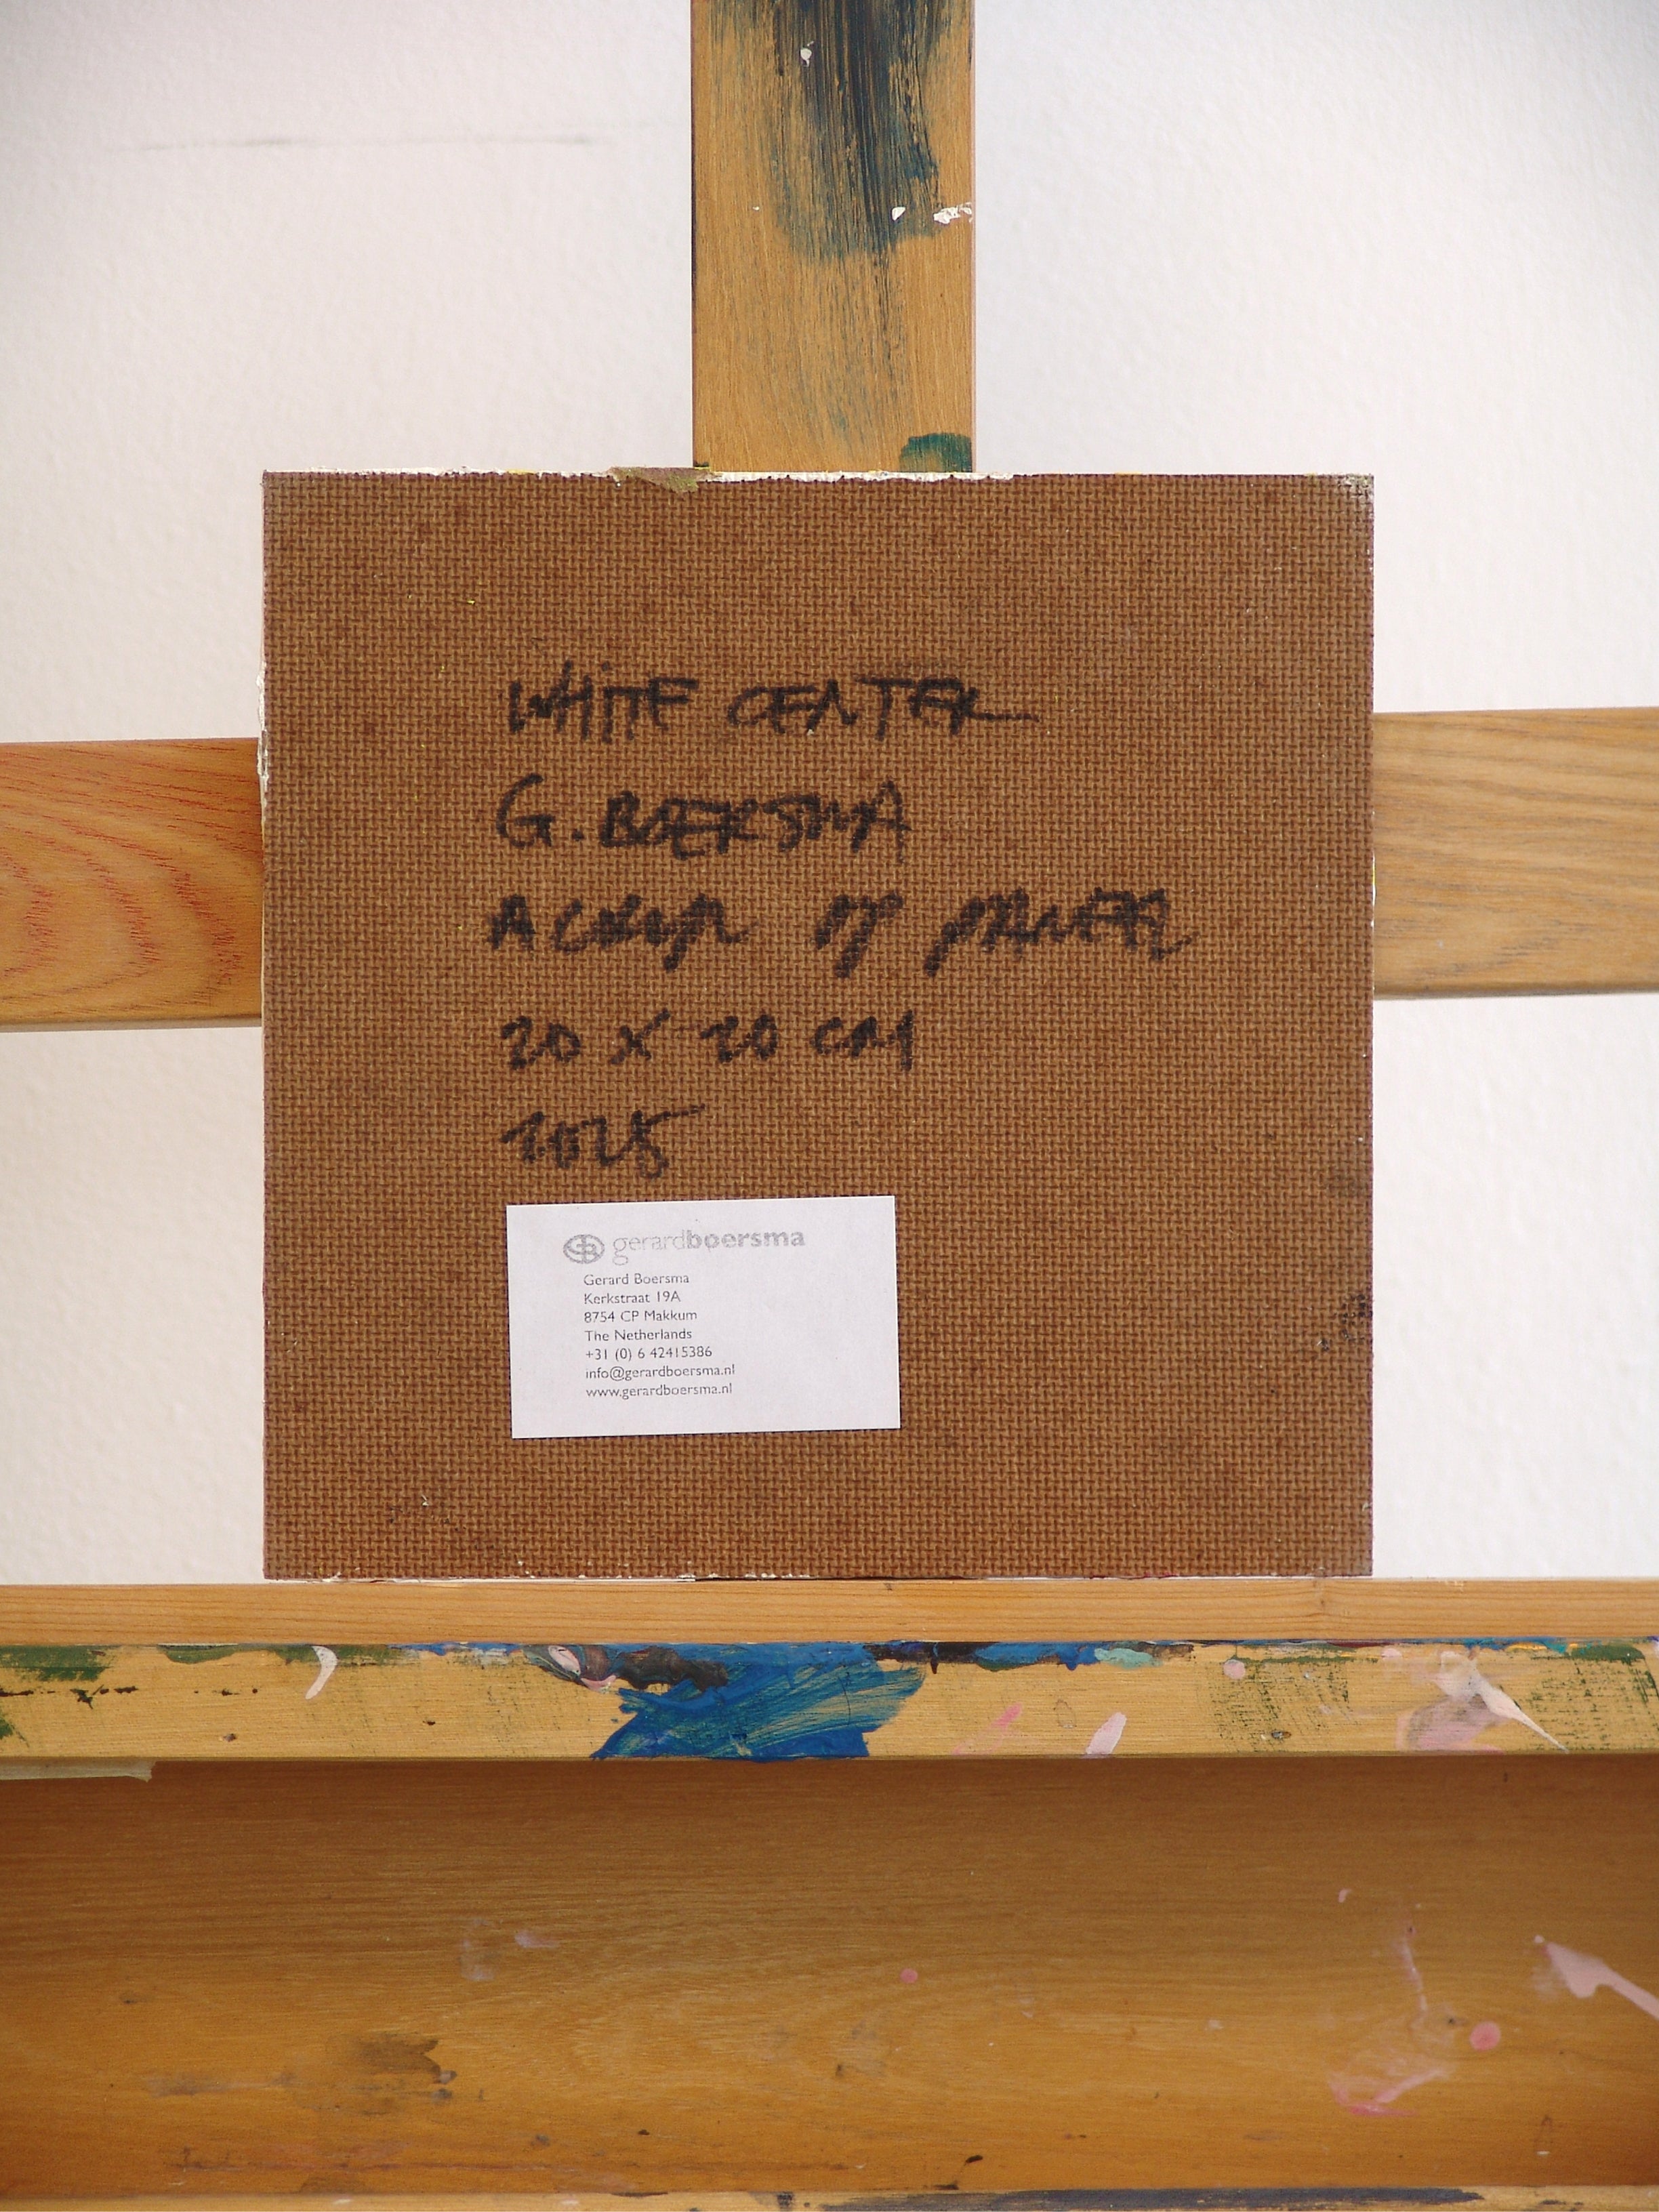 WHITE CENTER
G. BOERSMA
ACRYL OP PANEEL
20 X 20 CM
2025
GB gerardboersma
Gerard Boersma
Kerkstraat 19A
8754 CP Makkum
The Netherlands
+31 (0) 6 42415386
info@gerardboersma.nl
www.gerardboersma.nl